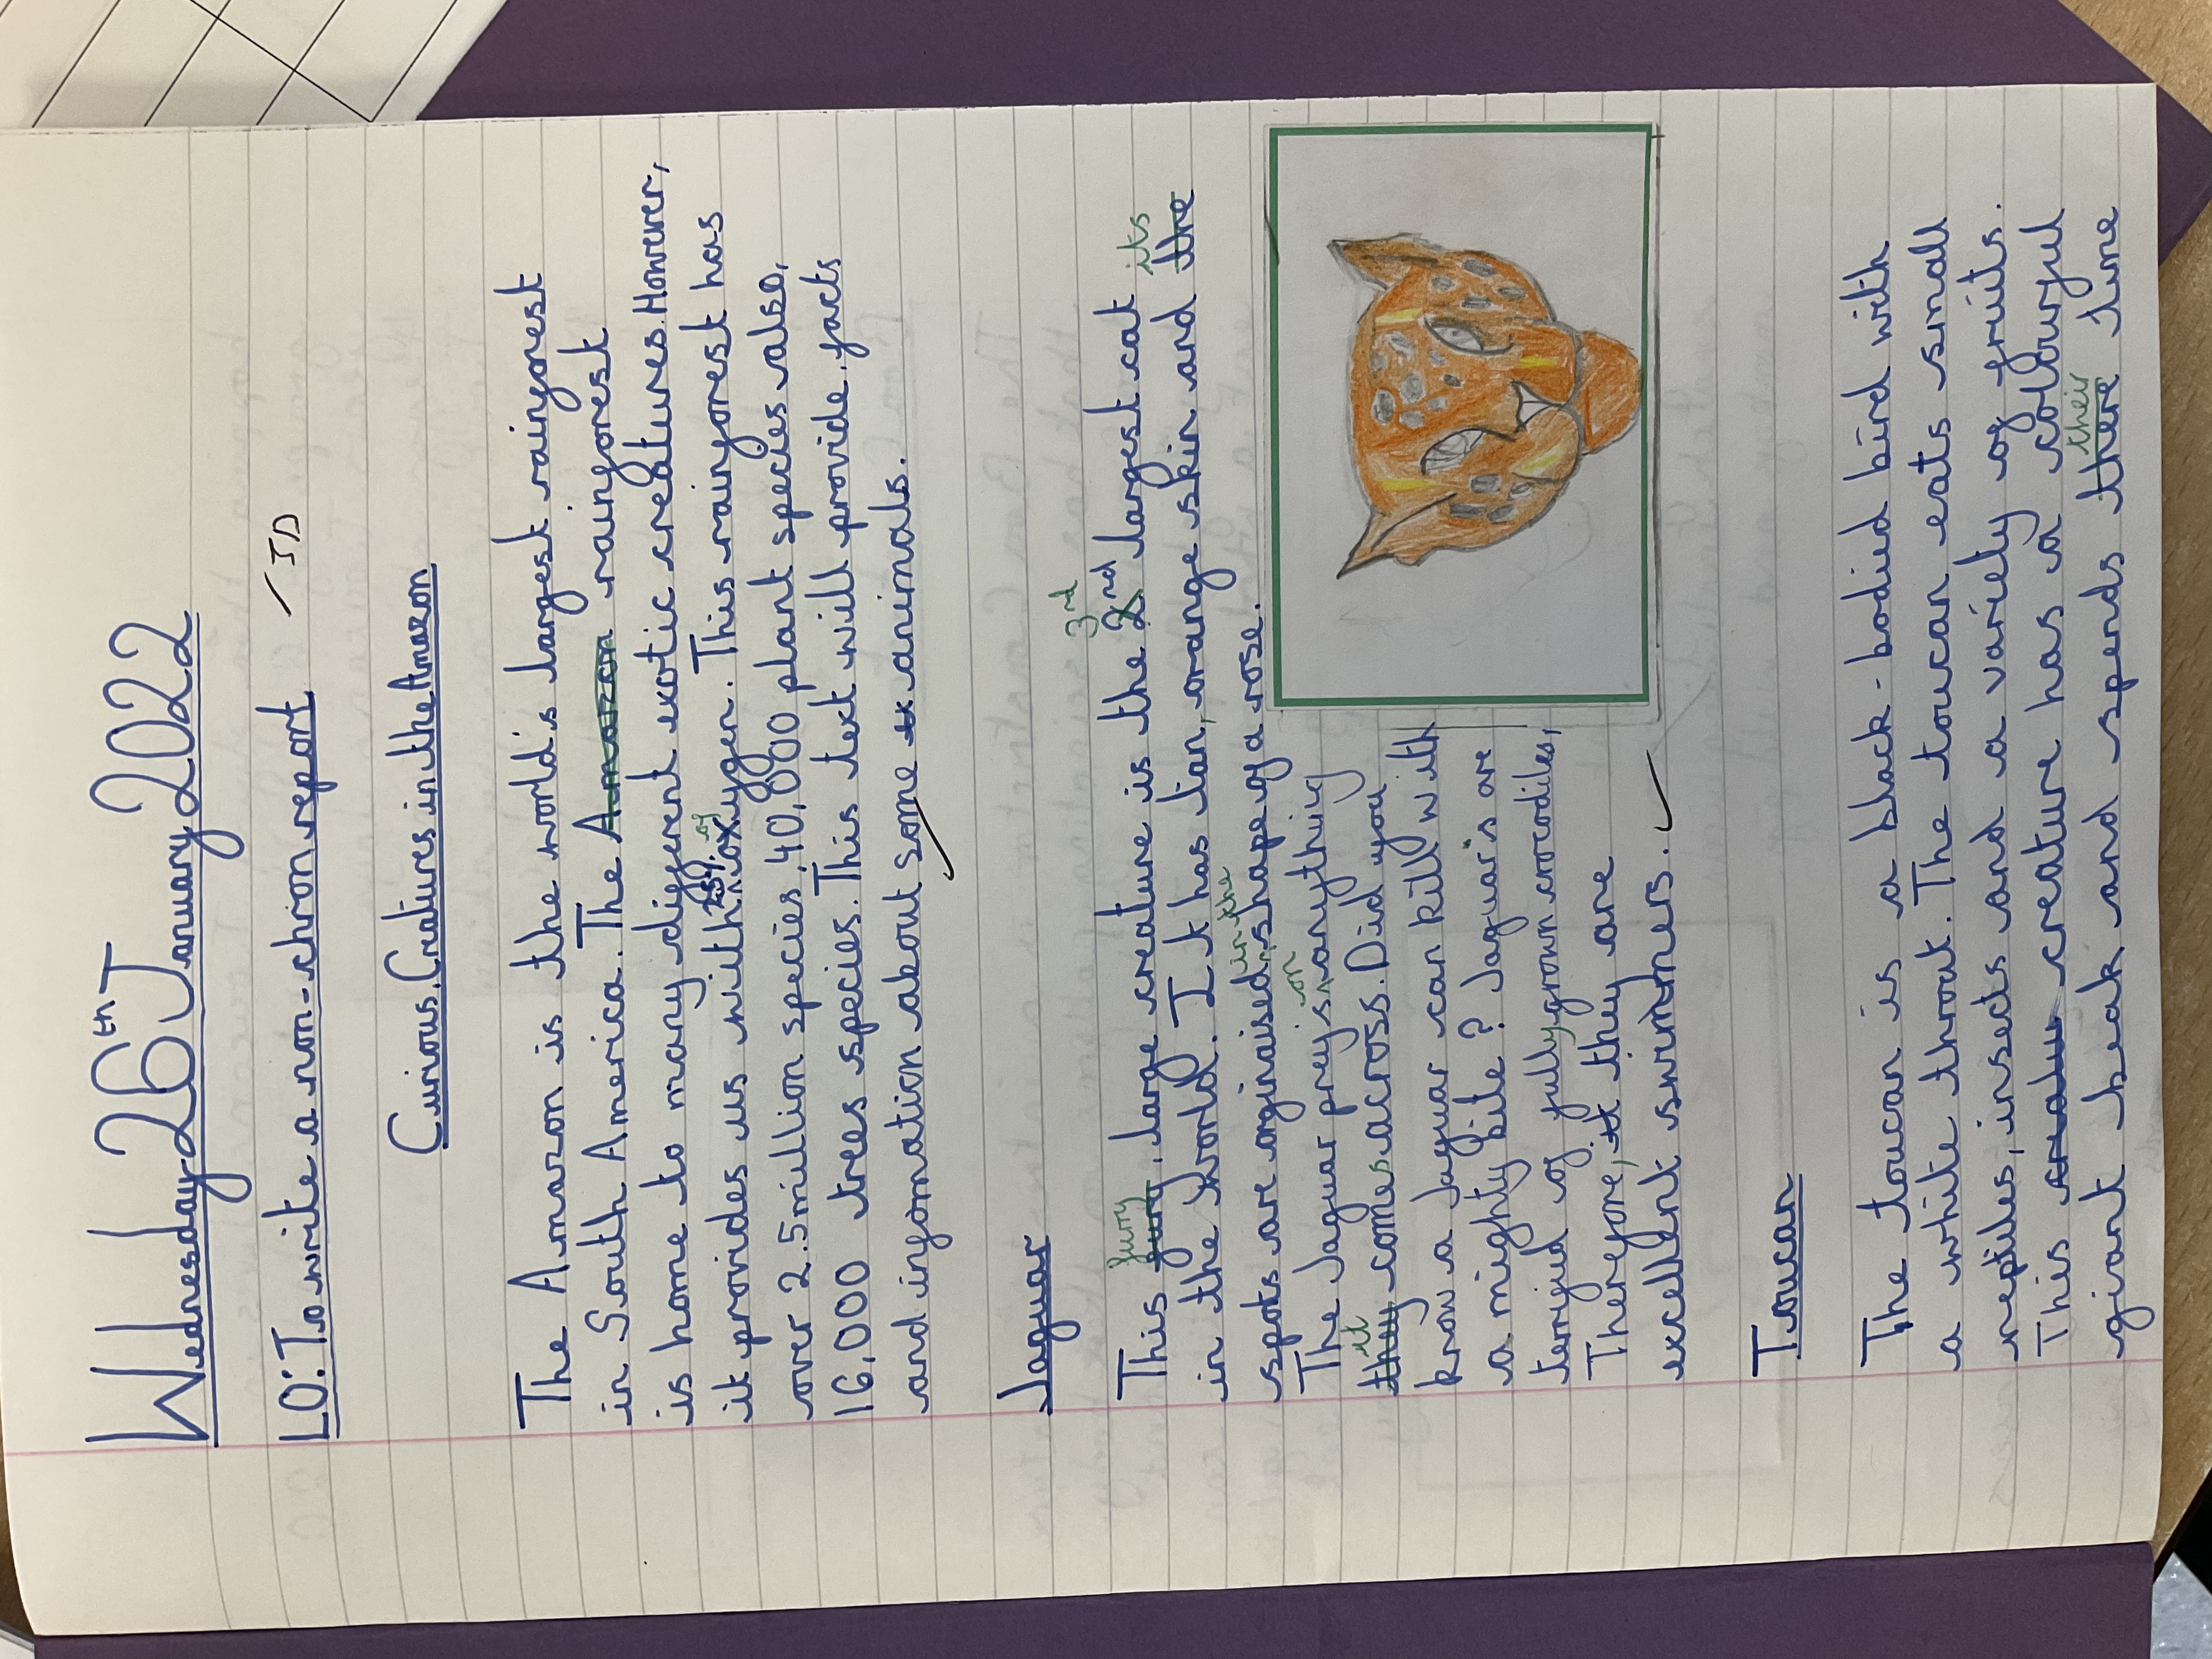 Wednesday 26th January 2022
LO: To write a non-chron report ID
Curious Creatures in the Amazon
The Amazon is the world's largest rainforest
in South America. The Amazon rainforest
is home to many different exotic creatures. However,
it provides us with 20% of oxygen. This rainforest has
over 2.5 million species, 40,000 plant species also,
16,000 trees species. This text will provide facts
and information about some animals.
Jaguar
This furry furry, large creature is the 3rd 2nd largest cat
in the world. It has tan, orange skin and its the
spots are orginaised in the shape of a rose.
The Jaguar preys on anything
it they comes across. Did you
know a Jaguar can kill with
a mighty bite? Jaguar's are
terrified of fully grown crocodiles,
Therefore, they are
excellent swimmers.
Toucan
The toucan is a black-bodied bird with
a white throat. The toucan eats small
reptiles, insects and a variety of fruits.
This creature has a colourful
giant beak and spends their there time